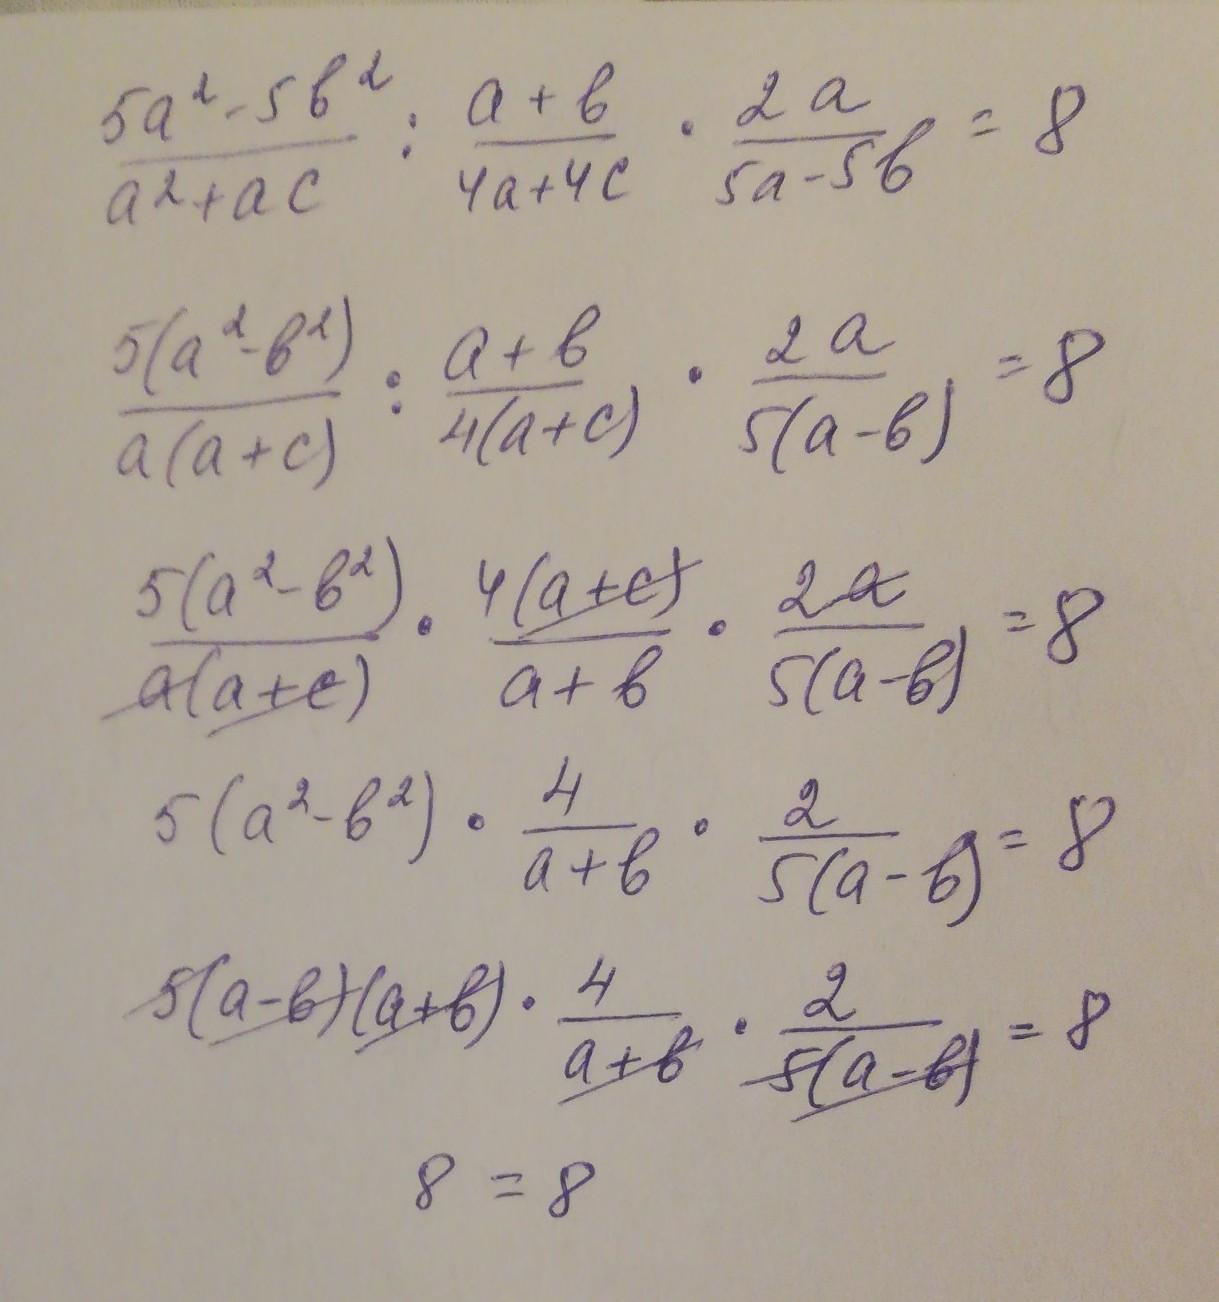 (5a² - 5b²)/(a² + ac) : (a + b)/(4a + 4c) · 2a/(5a - 5b) = 8
5(a² - b²)/(a(a + c)) : (a + b)/(4(a + c)) · 2a/(5(a - b)) = 8
5(a² - b²)/(a(a + c)) · 4(a + c)/(a + b) · 2a/(5(a - b)) = 8
5(a² - b²) · 4/(a + b) · 2/(5(a - b)) = 8
5(a - b)(a + b) · 4/(a + b) · 2/(5(a - b)) = 8
8 = 8